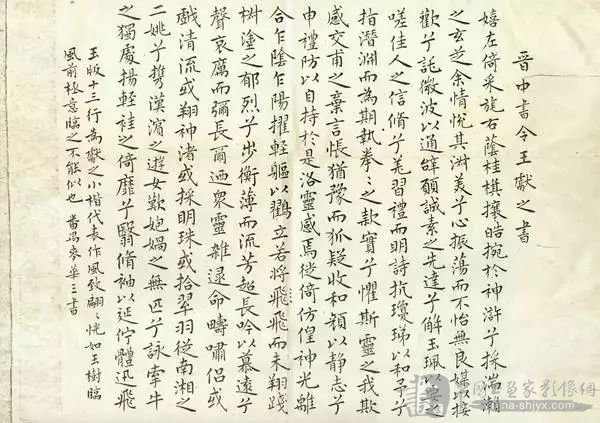 晋中書令王獻之書
嬉左倚采旄右蔭桂棋攘皓捥於神滸兮採湍瀨
之玄芝余情悅其淑美兮心振蕩而不怡無良媒以接
歡兮託微波以通辝願誠素之先達兮解玉珮以要之
嗟佳人之信脩兮羌習禮而明詩抗瓊珶以和予兮
指潛淵而為期執拳〻之款實兮懼斯靈之我欺
感交甫之棄言悵猶豫而狐疑收和顏以静志兮
申禮防以自持於是洛靈感焉徙倚仿偟神光離
合乍陰乍陽擢輕軀以鸖立若將飛飛而未翔踐
椒塗之郁烈兮步衡薄而流芳超長吟以慕遠兮
聲哀厲而彌長爾迺衆靈雜遝命疇嘯侶或
戲清流或翔神渚或採明珠或拾翠羽從南湘之
二姚兮攜漢濱之遊女歎匏媧之無匹兮詠牽牛
之獨處揚輕袿之倚靡兮翳脩袖以延佇體迅飛
玉版十三行為獻之小楷代表作風致翩〻恍如玉樹臨
風前極意臨之不能似也 番禺麥華三書
china-shjyx.com